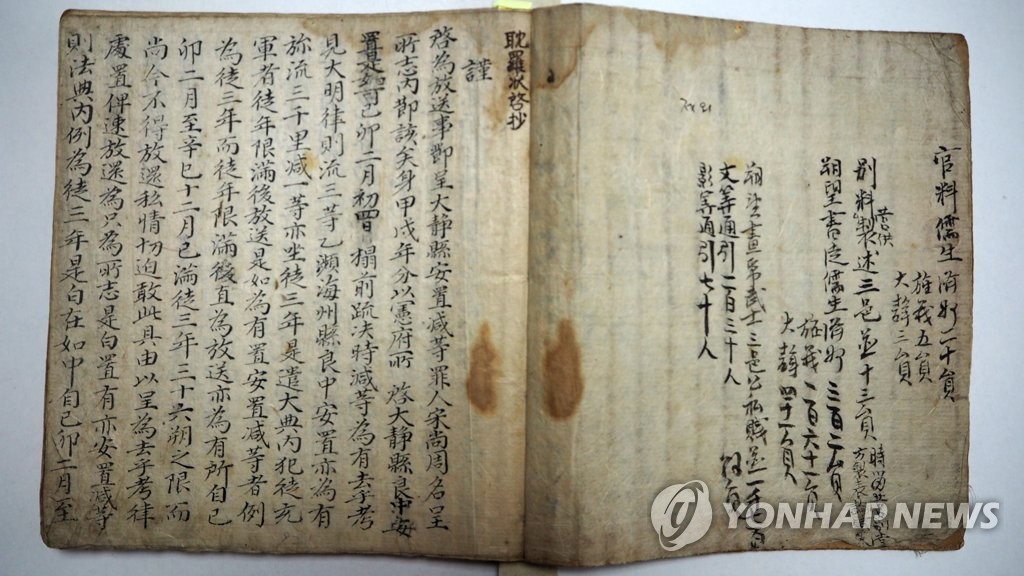 官料儒生濟州二十員
旌義五員
大靜三員
營供
別料製述三邑並十三員
朔望書徒儒生濟州三百二十員
旌義一百六十一員
大靜四十一員
武士三邑公私賤並一千七百
文筭通引二百三十人
影筭通引七十人
耽羅狀啓抄
謹
啓為放送事卽呈大靜縣安置减等罪人宋尚周名呈
所志內卽該矣身甲戌年分以憲府所 啓大靜縣良中安
置是 己卯二月初四日 榻前疏决特减等為有去乎考
見大明律則流三等乙瀕海州縣良中安置亦為有
旀流三千里减一等亦坐徒三年是遣大典內犯徒充
軍者徒年限滿後放送是如為有置安置减等者例
為徒三年而徒年限滿後直為放送亦為有所自己
卯二月至辛巳十二月已滿徒三年三十六朔之限而
尚今不得放還私情切迫敢此具由以呈為去乎考律
處置俾速放還為只為所志是白置有亦安置减等
則法典內例為徒三年是白在如中自己卯二月至
YONHAP NEWS